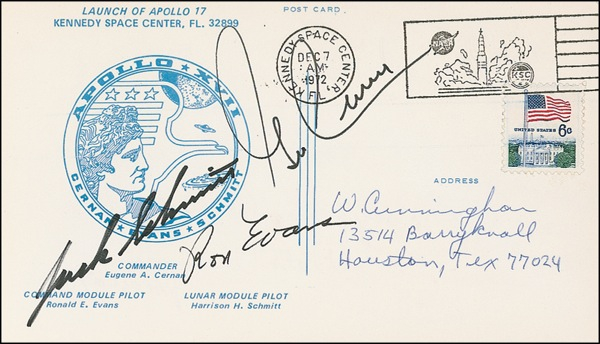 LAUNCH OF APOLLO 17
KENNEDY SPACE CENTER, FL. 32899
POST CARD
KENNEDY SPACE CENTER, FL
DEC 7
AM
1972
NASA
KSC
UNITED STATES 6c
APOLLO XVII
CERNAN EVANS SCHMITT
Gene Cernan
Jack Schmitt
Ron Evans
ADDRESS
W. Cunningham
13514 Barryknoll
Houston, Tex 77024
COMMANDER
Eugene A. Cernan
COMMAND MODULE PILOT
Ronald E. Evans
LUNAR MODULE PILOT
Harrison H. Schmitt